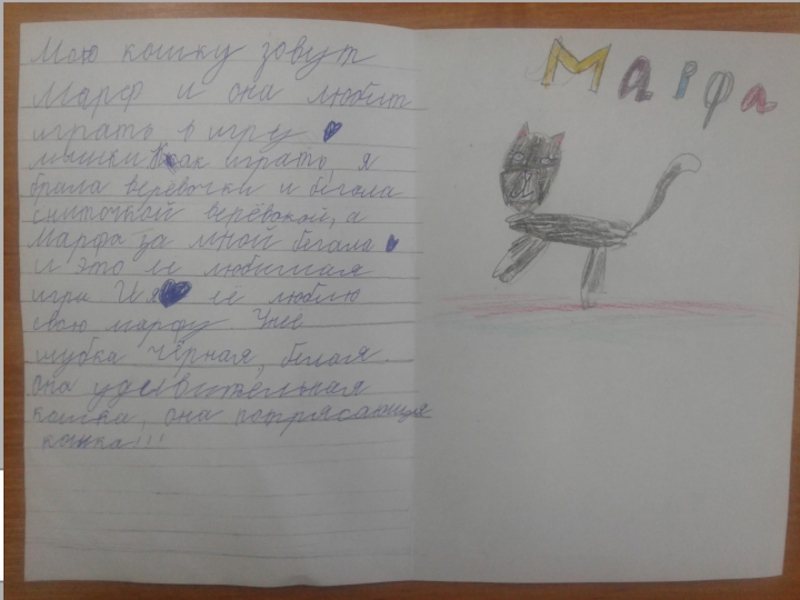 Мою кошку зовут
Марф и она любит
играть в игру
мышки как играть, я
брала веревочки и бегала
сниточкой верёвокой, а
Марфа за мной бегала
и это ее любимая
игра И я её люблю
свою марфу. Унеё
шубка чёрная, белая
она удивительная
кошка, она потрясающая
кошка!!!
Марфа